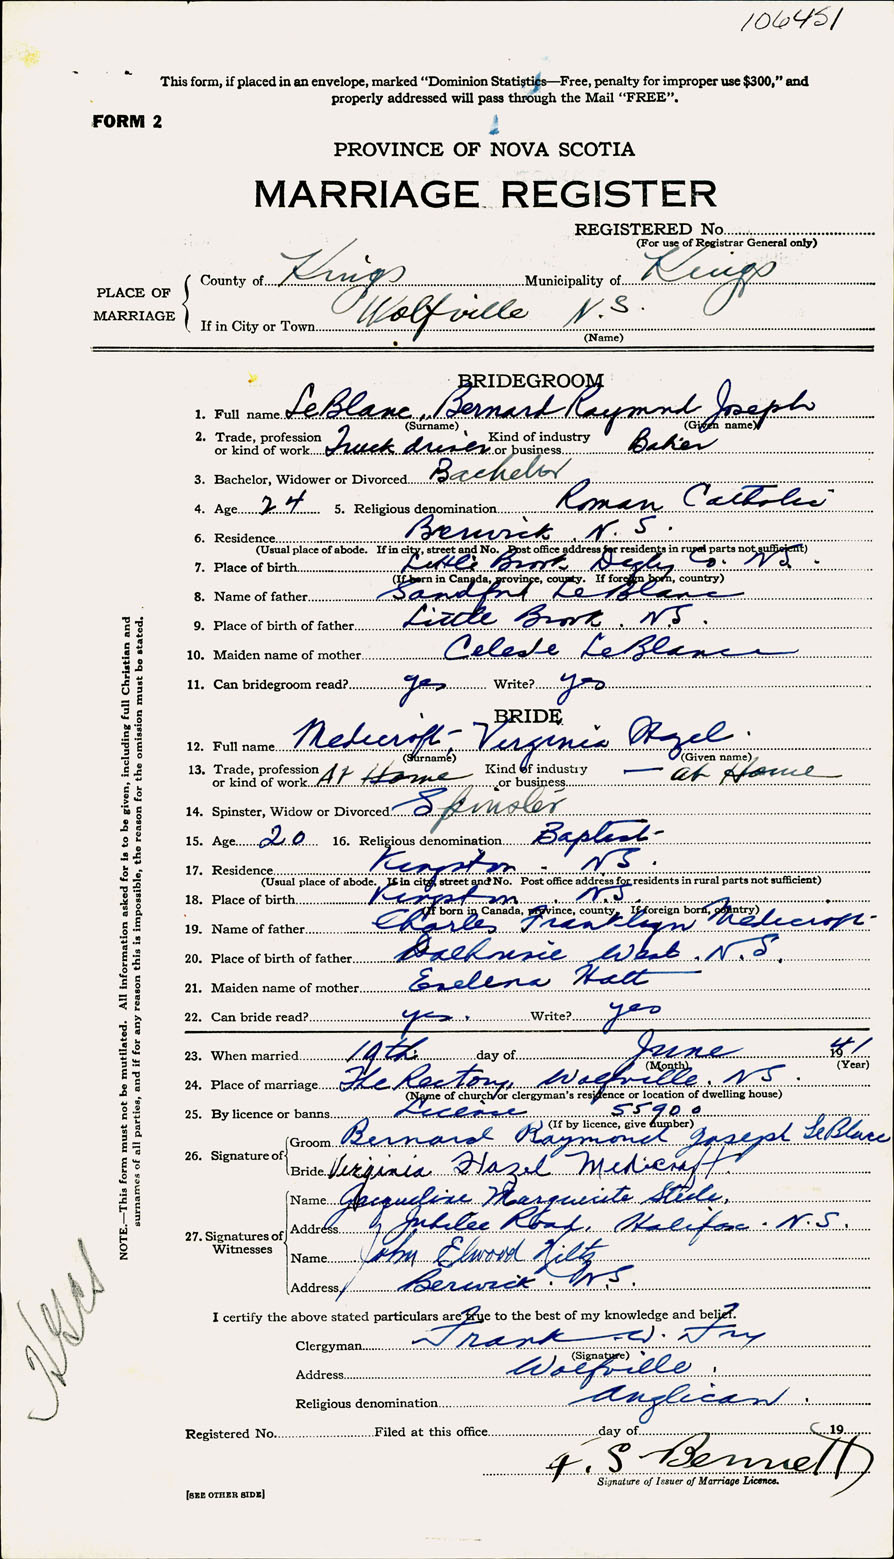 106451
This form, if placed in an envelope, marked "Dominion Statistics—Free, penalty for improper use $300," and
properly addressed will pass through the Mail "FREE".
FORM 2
PROVINCE OF NOVA SCOTIA
MARRIAGE REGISTER
REGISTERED No.
(For use of Registrar General only)
PLACE OF MARRIAGE
County of Kings Municipality of Kings
If in City or Town Wolfville N.S.
(Name)
BRIDEGROOM
1. Full name LeBlanc, Bernard Raymond Joseph
(Surname) (Given name)
2. Trade, profession or kind of work Truck driver Kind of industry or business Baker
3. Bachelor, Widower or Divorced Bachelor
4. Age 24 5. Religious denomination Roman Catholic
6. Residence Berwick, N.S.
(Usual place of abode. If in city, street and No. Post office address for residents in rural parts not sufficient)
7. Place of birth Little Brook Digby Co. N.S.
(If born in Canada, province, county. If foreign born, country)
8. Name of father Sandford LeBlanc
9. Place of birth of father Little Brook, N.S.
10. Maiden name of mother Celeste LeBlanc
11. Can bridegroom read? yes Write? yes
BRIDE
12. Full name Medicroft, Virginia Hazel.
(Surname) (Given name)
13. Trade, profession or kind of work At Home Kind of industry or business — at Home
14. Spinster, Widow or Divorced Spinster
15. Age 20 16. Religious denomination Baptist
17. Residence Kingston - N.S.
(Usual place of abode. If in city, street and No. Post office address for residents in rural parts not sufficient)
18. Place of birth Kingston, N.S.
(If born in Canada, province, county. If foreign born, country)
19. Name of father Charles Franklyn Medicroft
20. Place of birth of father Dalhousie West, N.S.
21. Maiden name of mother Evelena Hatt
22. Can bride read? yes. Write? yes
23. When married 19th day of June 1941
(Month) (Year)
24. Place of marriage The Rectory, Wolfville, N.S.
(Name of church or clergyman's residence or location of dwelling house)
25. By licence or banns License 55900
(If by licence, give number)
26. Signature of
Groom Bernard Raymond Joseph LeBlanc
Bride Virginia Hazel Medicraft
27. Signatures of Witnesses
Name Jacqueline Marguerite Steele,
Address Jubilee Road, Halifax. N.S.
Name John Elwood Niltz
Address Berwick. N.S.
I certify the above stated particulars are true to the best of my knowledge and belief.
Clergyman Frank W. Fry
(Signature)
Address Wolfville.
Religious denomination Anglican.
Registered No. Filed at this office day of 19
F. S Bennett
Signature of Issuer of Marriage Licence.
[SEE OTHER SIDE]
NOTE.—This form must not be mutilated. All information asked for is to be given, including full Christian and
surnames of all parties, and if for any reason this is impossible, the reason for the omission must be stated.